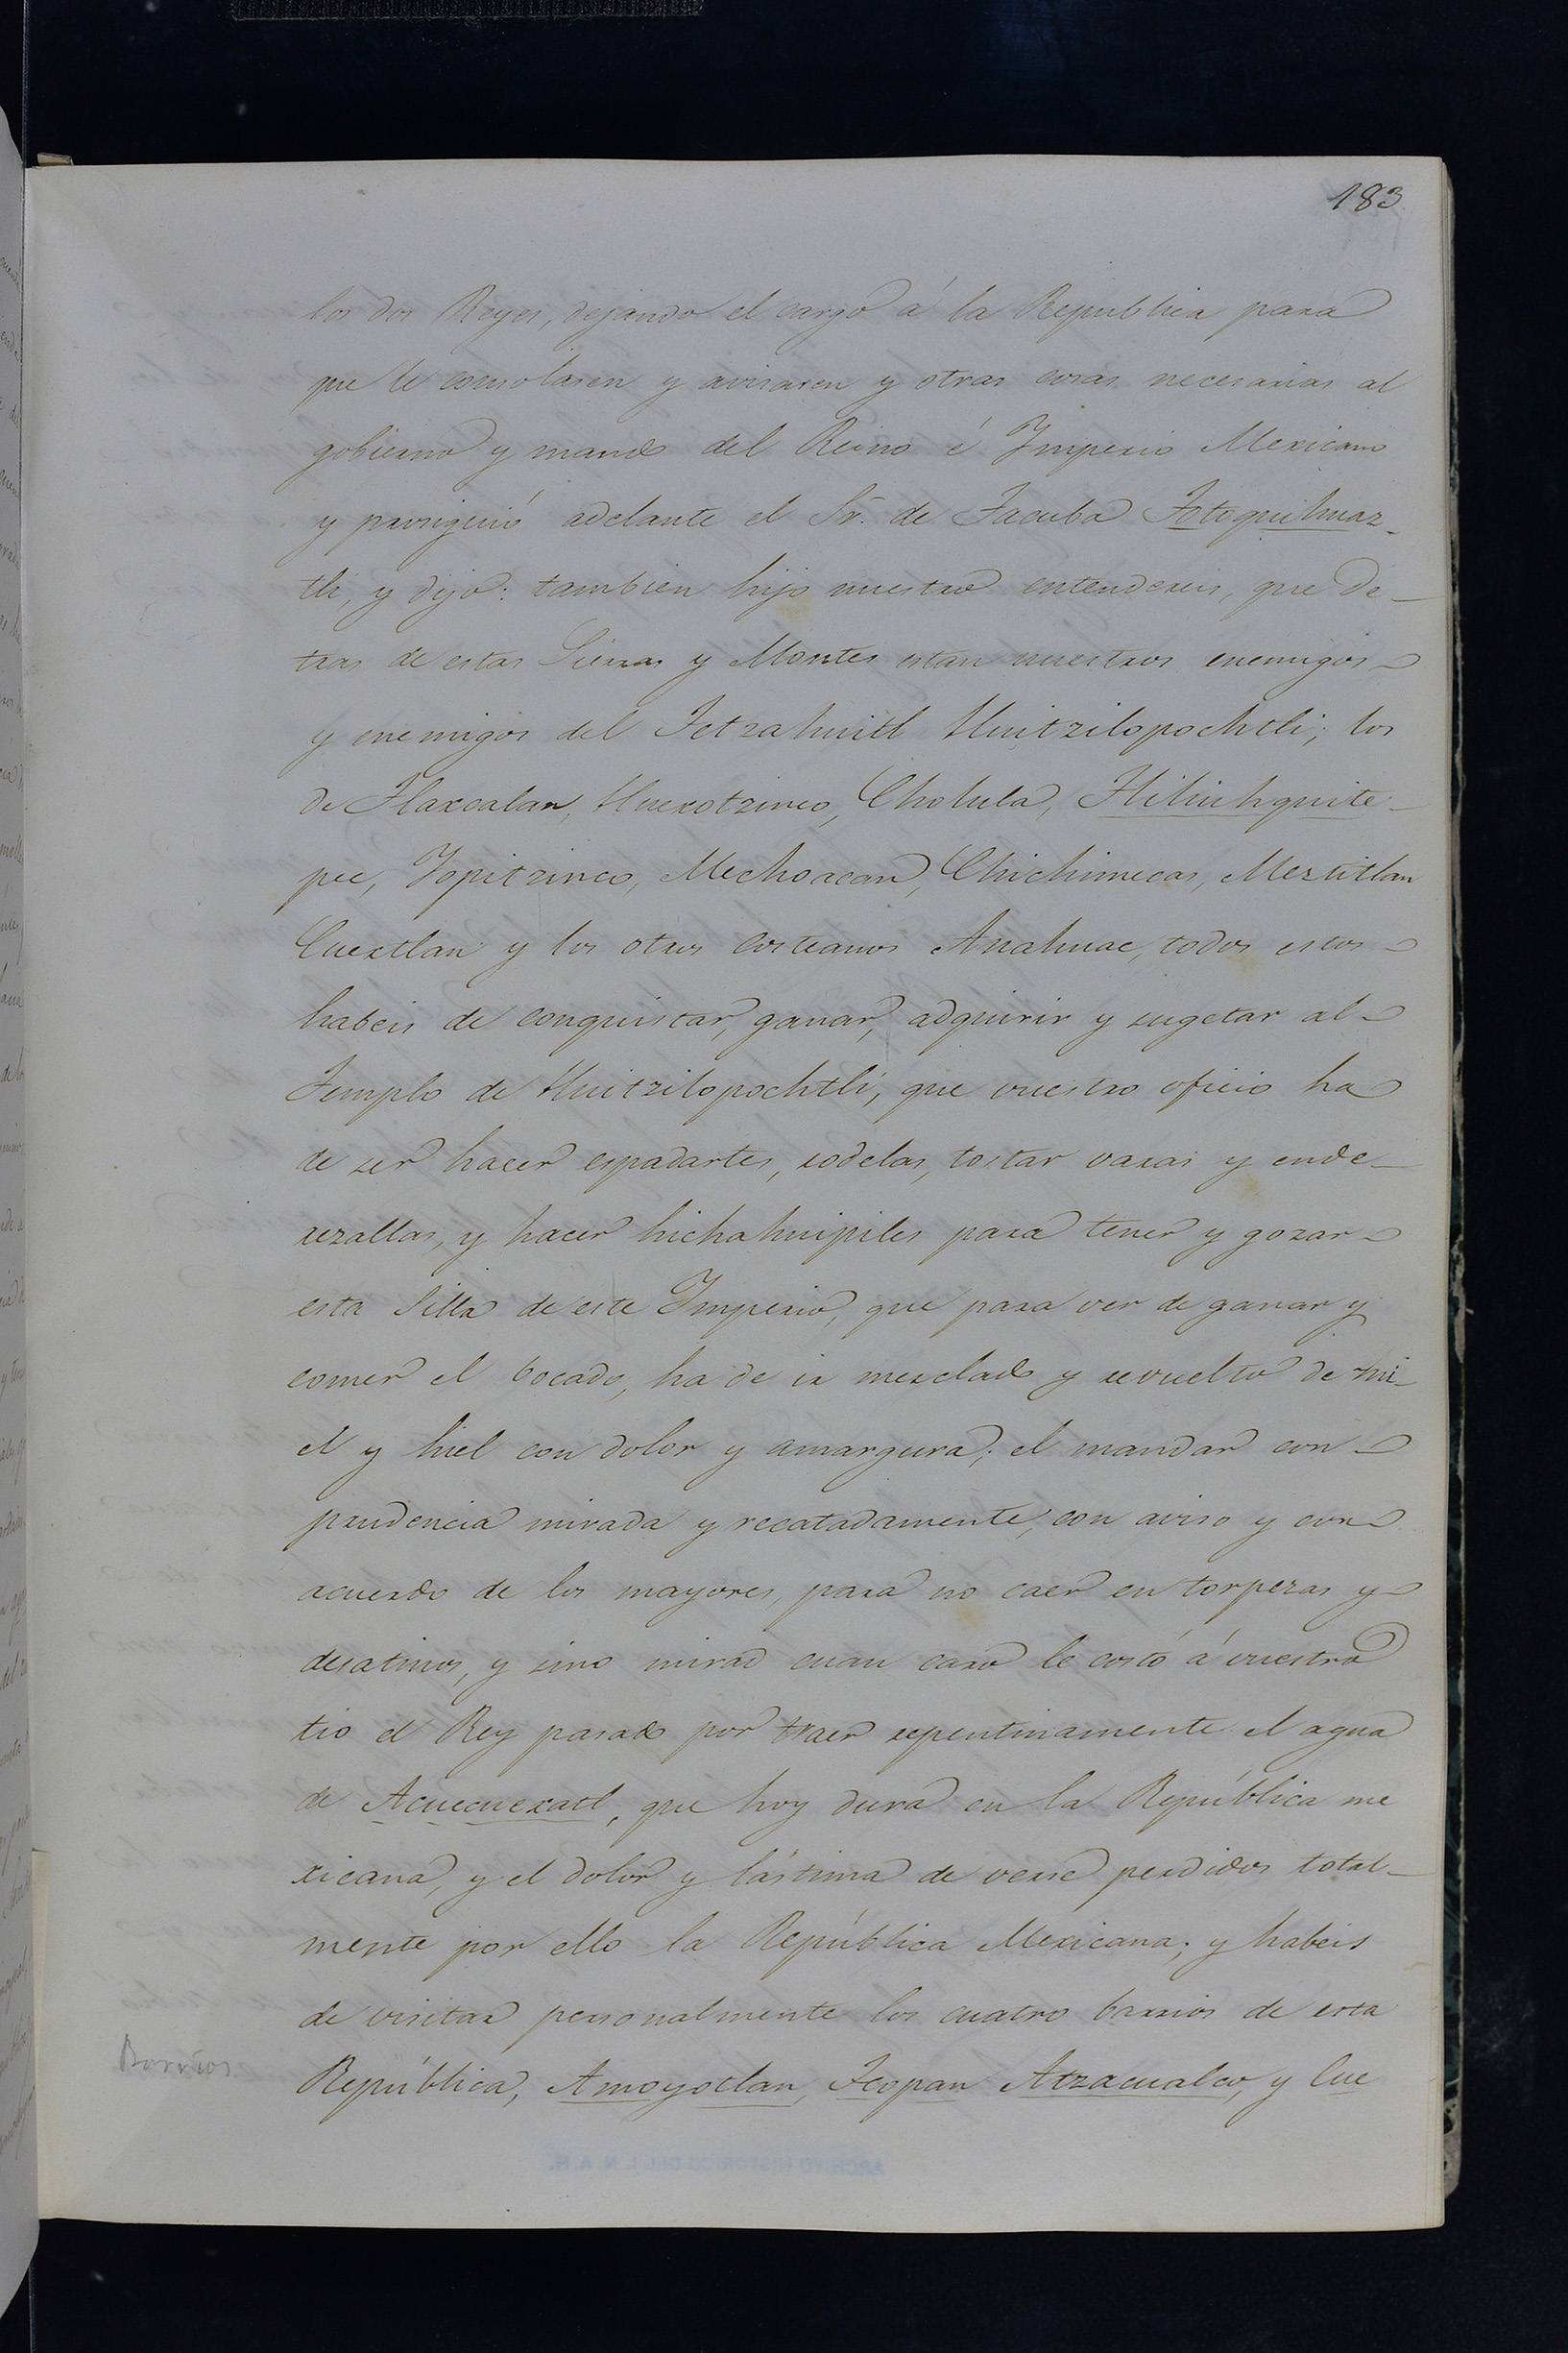 183
los dos Reyes, dejando el cargo á la Republica para
que le consolasen y avisasen y otras cosas necesarias al
gobierno y mando del Reino é Imperio Mexicano
y prosiguió adelante el Sr. de Tacuba Totoquihuaz-
tli, y dijo: tambien hijo nuestro entendereis, que de-
tras de estas Sierras y Montes estan nuestros enemigos
y enemigos del Tetzahuitl Huitzilopochtli; los
de Tlaxcalan, Huexotzinco, Cholula, Tliliuhquite-
pec, Yopitzinco, Mechoacan, Chichimecas, Meztitlan
Cuextlan y los otros costeanos Anahuac, todos estos
habeis de conquistar, ganar, adquirir y sugetar al
Templo de Huitzilopochtli, que vuestro oficio ha
de ser hacer espadartes, rodelas, tostar varas y ende-
rezallas, y hacer hichahuipiles para tener y gozar
esta Silla de este Imperio, que para ver de ganar y
comer el bocado, ha de ir mezclado y revuelto de mi-
el y hiel con dolor y amargura; el mandar con
prudencia mirada y recatadamente, con aviso y con
acuerdo de los mayores, para no caer en torpezas y
desatinos, y sino mirad cuan caro le costó á vuestro
tio el Rey pasado por traer repentinamente el agua
de Acuecuexatl, que hoy dura en la República me
xicana, y el dolor y lástima de verse perdidos total-
mente por ello la República Mexicana; y habeis
de visitar personalmente los cuatro barrios de esta
Barrios
República, Amoyotlan, Teopan Atzacualco, y Cue
ARCHIVO HISTORICO DEL I. N. A. H.